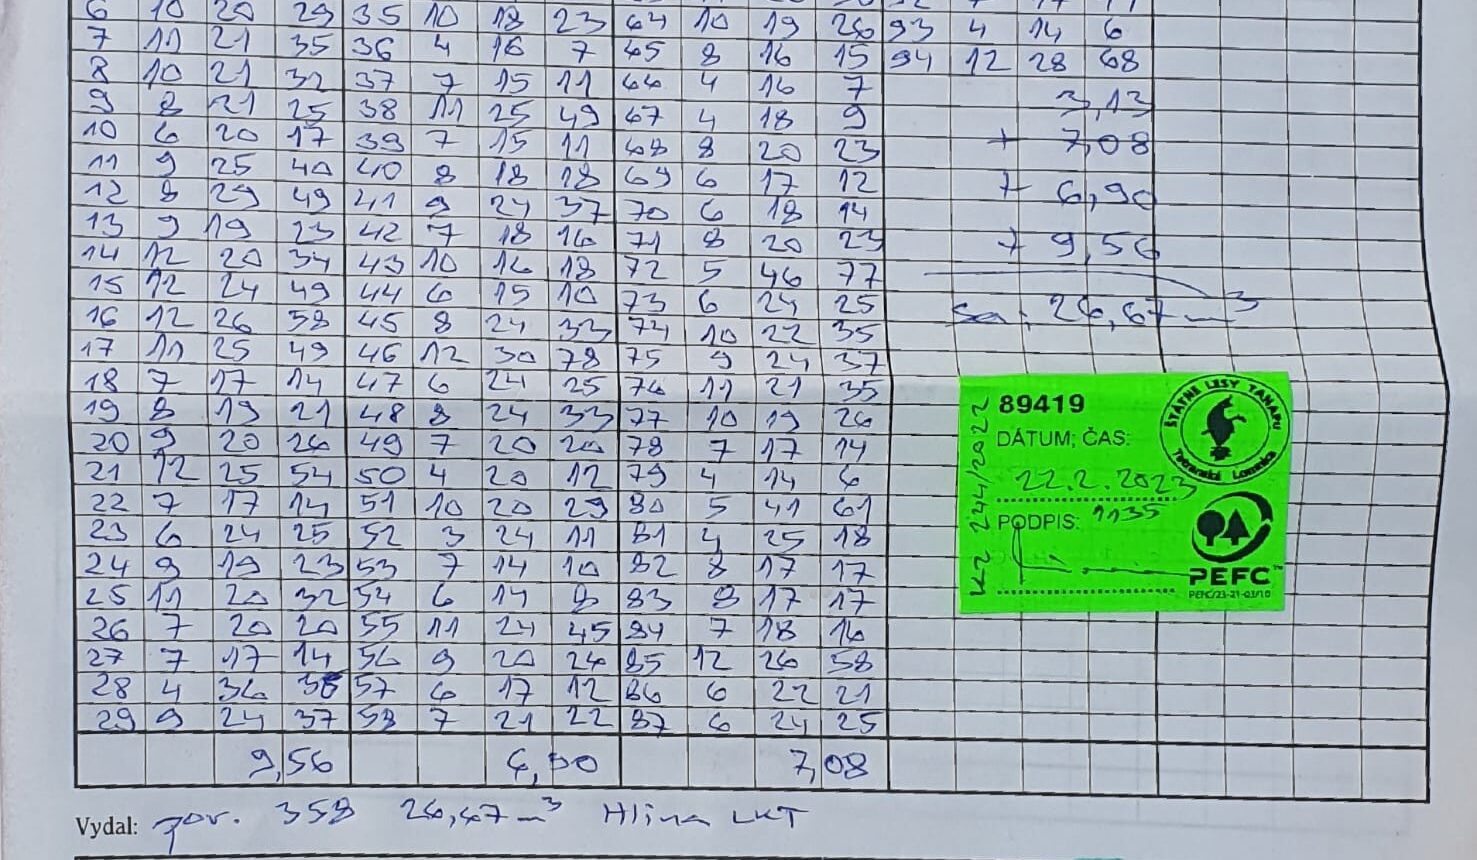 6 10 20 29 35 10 18 23 64 10 19 26 93 4 14 6
7 11 21 35 36 4 16 7 65 8 16 15 94 12 28 68
8 10 21 32 37 7 15 11 66 4 16 7 3,13
9 8 21 25 38 11 25 49 67 4 18 9
10 6 20 17 39 7 15 11 68 8 20 23 + 7,08
11 9 25 40 40 8 18 18 69 6 17 12 + 6,90
12 8 29 49 41 9 24 37 70 6 18 14
13 9 19 23 42 7 18 16 71 8 20 23 + 9,56
14 12 20 34 43 10 16 18 72 5 46 77
15 12 24 49 44 6 15 10 73 6 24 25 Sa: 26,67 m³
16 12 26 58 45 8 24 33 74 10 22 35
17 11 25 49 46 12 30 78 75 9 24 37
18 7 17 14 47 6 24 25 76 11 21 35
19 8 19 21 48 8 24 33 77 10 19 26
20 9 20 26 49 7 20 20 78 7 17 14
21 12 25 54 50 4 20 12 79 4 14 6
22 7 17 14 51 10 20 29 80 5 41 61
23 6 24 25 52 3 24 11 81 4 25 18
24 9 19 23 53 7 14 10 82 8 17 17
25 11 20 32 54 6 14 8 83 8 17 17
26 7 20 20 55 11 24 45 84 7 18 16
27 7 17 14 56 9 20 26 85 12 26 58
28 4 36 36 57 6 17 12 86 6 22 21
29 9 24 37 58 7 21 22 87 6 24 25
9,56 6,90 7,08
Vydal: por. 358 26,67 m³ Hlina LKT
LKZ 244/2022
89419
DÁTUM; ČAS:
22.2.2023
PODPIS: 1135
ŠTÁTNE LESY TANAPU
Tatranská Lomnica
PEFC™
PEFC/23-21-03/10